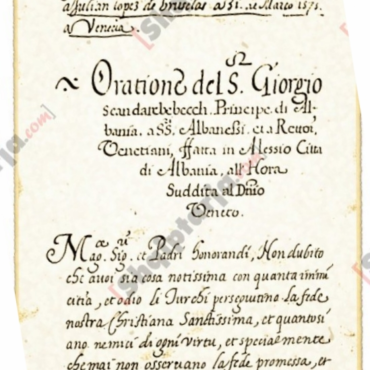 a Julian lopez de bruselas a 31. de Março 1571.
a Venecia.
Oratione del S.or Giorgio
Scandarebebecch. Principe di Al-
bania. a SS.ri Albanessi. et a Rettori
Venetiani, ffatta in Alessio Citta
di Albania. all'Hora
Suddita al D.nio
Veneto.
Mag.ci Sig.ri et Padri honorandi, Non dubito
che a voi sia cosa notissima con quanta inimi
citia, et odio li Turchi perseguitino la fede
nostra Christiana Santissima, et quanto si
ano nemici di ogni virtu, et specialmente
che mai non osservano la fede promessa, et
[Shqiptarja.com]